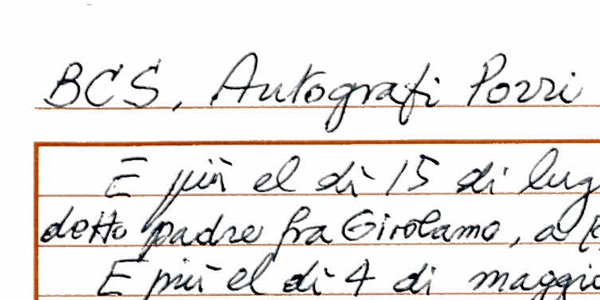 BCS, Autografi Porri
E più el dì 15 di lug
detto padre fra Girolamo, a
E più el dì 4 di maggio